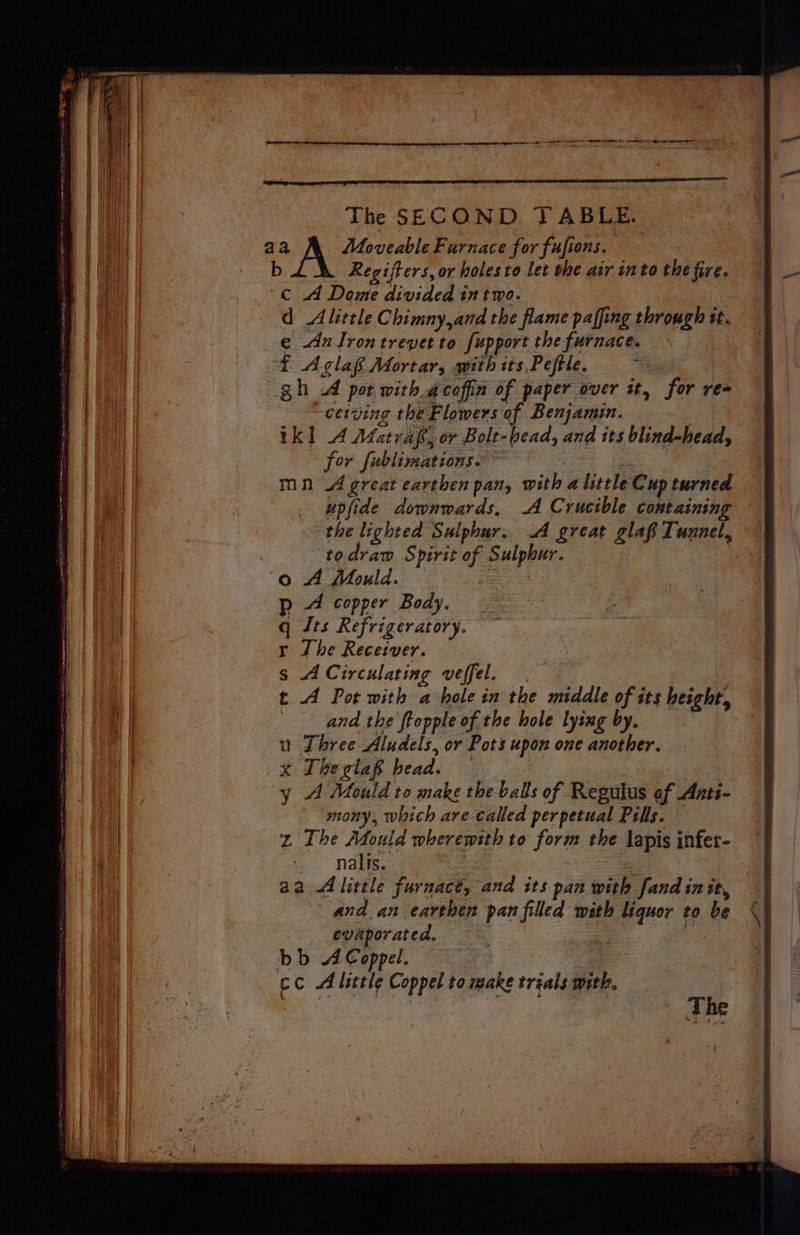 The SECOND TABLE.
aa A Moveable Furnace for fuſions.
b Regiſters, or holes to let the air into the fire.
c A Dome divided in two.
d A little Chimny, and the flame paſſing through it.
e An Iron trevet to ſupport the furnace.
f A glaſs Mortar, with its Peſtle.
gh A pot with a coffin of paper over it, for re-
ceiving the Flowers of Benjamin.
ikl A Matraſs, or Bolt-head, and its blind-head,
for ſublimations.
mn A great earthen pan, with a little Cup turned
upſide downwards. A Crucible containing
the lighted Sulphur. A great glaſs Tunnel,
to draw Spirit of Sulphur.
o A Mould.
p A copper Body.
q Its Refrigeratory.
r The Receiver.
s A Circulating veſſel.
t A Pot with a hole in the middle of its height,
and the ſtopple of the hole lying by.
u Three Aludels, or Pots upon one another.
x The glaſs head.
y A Mould to make the balls of Regulus of Anti-
mony, which are called perpetual Pills.
z The Mould wherewith to form the lapis infer-
nalis.
aa A little furnace, and its pan with ſand in it,
and an earthen pan filled with liquor to be
evaporated.
bb A Coppel.
cc A little Coppel to make trials with.
The